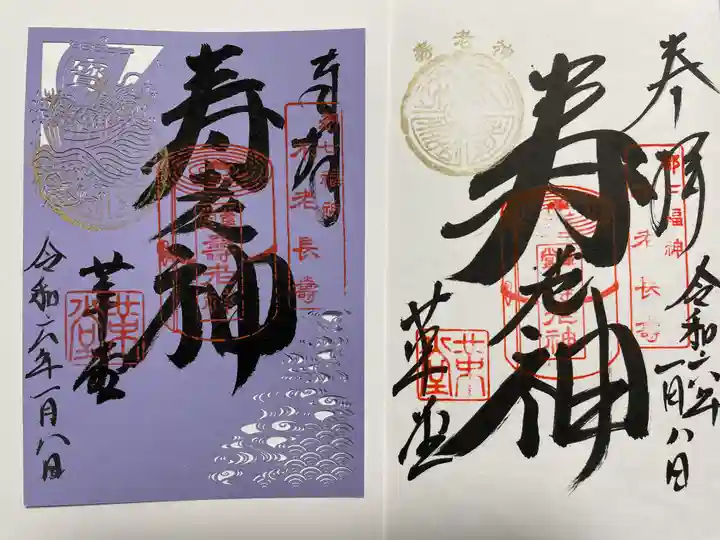 奉拝
都七福神
不老長寿
寳
寿老神
革堂
令和六年一月八日
奉拝
都七福神
不老長壽
寿老神
寿老神
革堂
令和六年一月八日